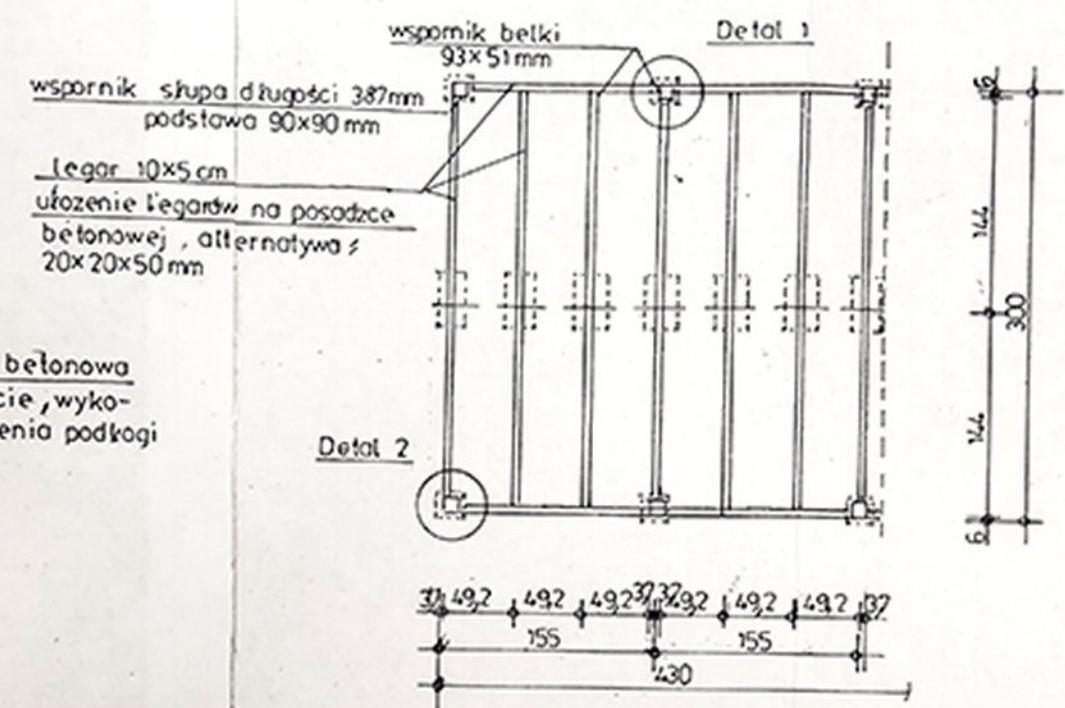 wspornik belki
93×51mm
Detal 1
wspornik słupa długości 387mm
podstawa 90×90 mm
legar 10×5 cm
ułożenie legarów na posadzce
betonowej, alternatywa:
20×20×50 mm
betonowa
cie, wyko-
enia podłogi
Detal 2
6
144
300
144
6
3,7 49,2 49,2 49,2 3,7 3,7 49,2 49,2 49,2 3,7
155 155
430